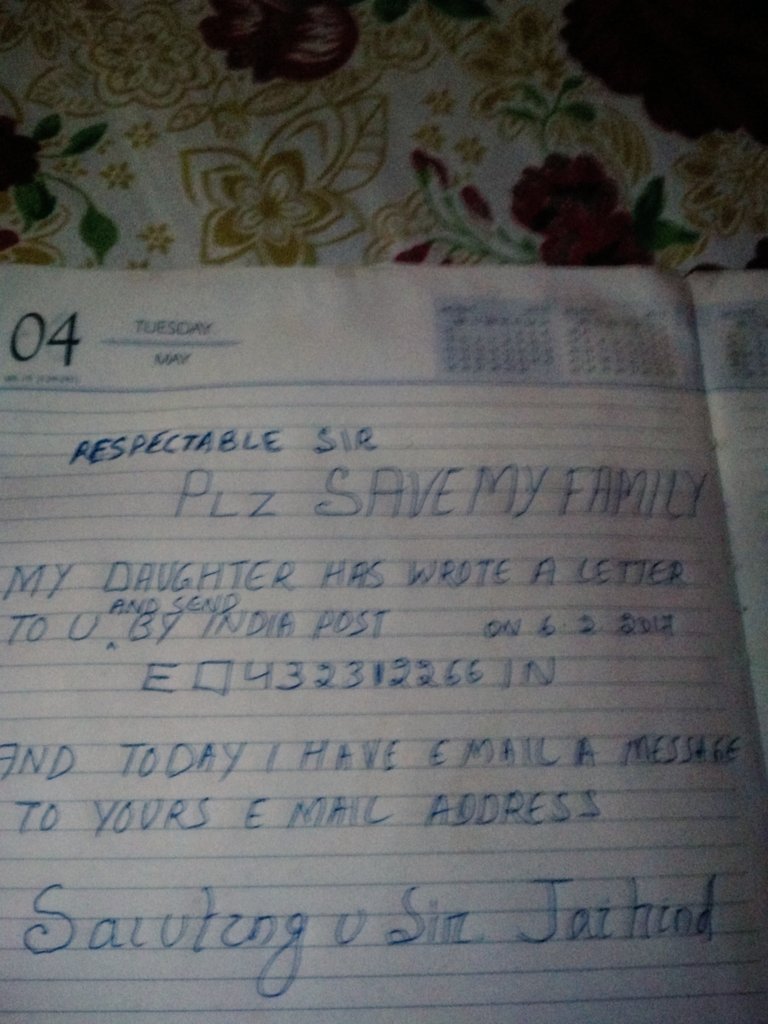 04
TUESDAY
MAY
RESPECTABLE SIR
PLZ SAVE MY FAMILY
MY DAUGHTER HAS WROTE A LETTER
AND SEND
TO U BY INDIA POST ON 6 2 2017
E 432312266 IN
AND TODAY I HAVE E MAIL A MESSAGE
TO YOURS E MAIL ADDRESS
Saluting u Sir Jaihind